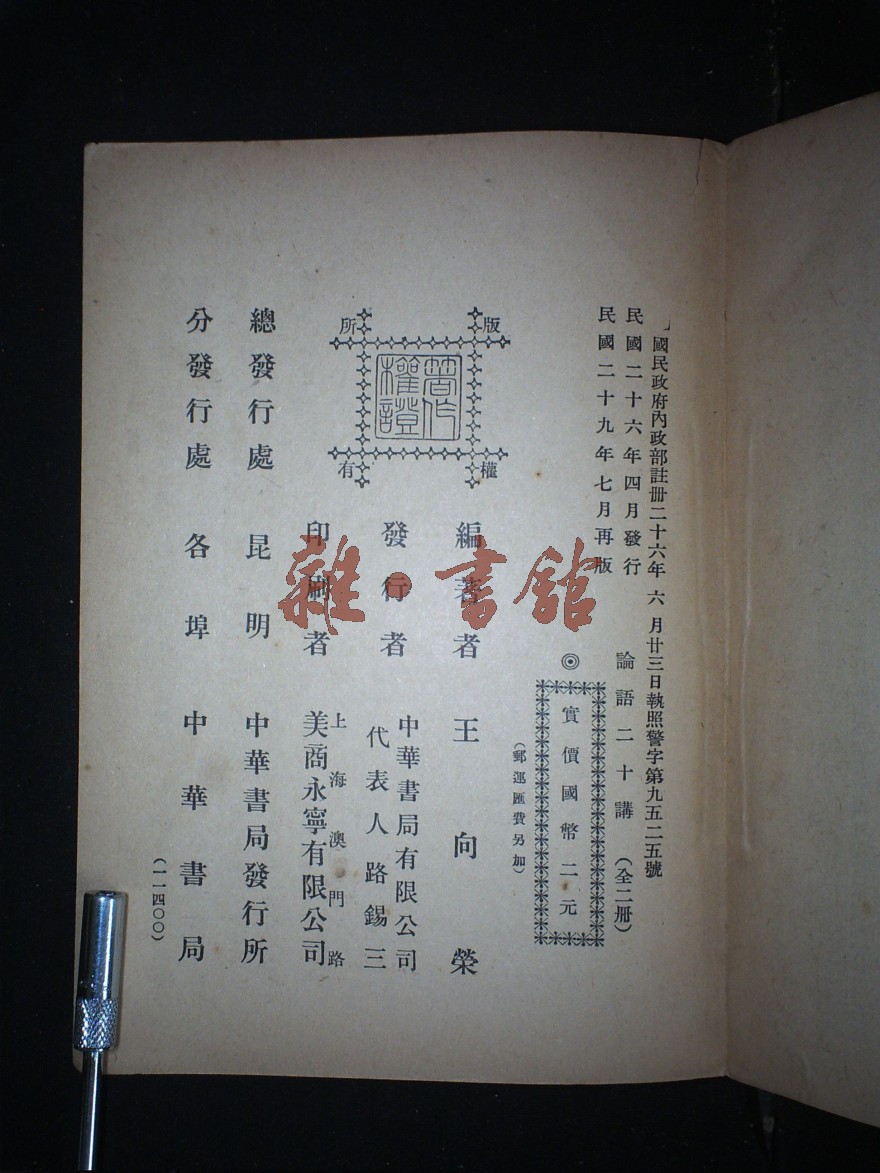 國民政府內政部註冊二十六年六月廿三日執照警字第九五二五號
民國二十六年四月發行
民國二十九年七月再版
論語二十講（全二冊）
◎實價國幣二元
（郵運匯費另加）
版權所有
著作權證
編著者 王向榮
發行者 中華書局有限公司
代表人路錫三
印刷者 上海澳門路
美商永寧有限公司
總發行處 昆明 中華書局發行所
分發行處 各埠 中華書局
（一一四〇〇）
雜·書館